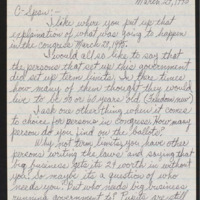 March 29, 1995
C-Span:-
I like where you put up that
explanation of what was going to happen
in the congress March 28, 1995.
I would also like to say that
the persons that set up this government
did set up term limits. In there times
how many of them thought they would
live to be 70 or 65 years old (Freedom now)
I ask one other thing when it comes
to choice for persons in congress how many
person do you find on the ballots?
Why, not term limits, you have other
persons writing the laws and saying that
big business gets it a worth in without
you! So maybe its a question of who
needs you. But who needs big business
running government to? People are still